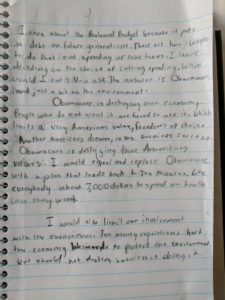 I care about the Balanced Budget because it puts
a debt on future generations. There are two ways
to do that: cut spending or raise taxes. I have
deciding on the choice of cutting spending. What
would I cut? You ask. The answer is Obamacare
and just a bit on the environment.
Obamacare is destroying our economy.
People who do not want it are forced to use it. Which
hurts a very American value, freedom of choice.
Another American dream, is the business success.
Obamacare is destroying those American
values. I would repeal and replace Obamacare
with a plan that leads back to
everybody about 7,000 dollars to spend on health
care, they would
I would also limit our involvement
with the environment. Too many regulations hurt
the economy. We need to protect the environment
but should not destroy business doing it.